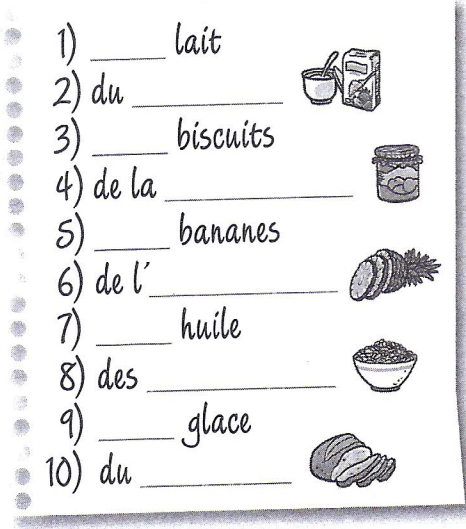 1) ______ lait
2) du ____________
3) ______ biscuits
4) de la _______________
5) ______ bananes
6) de l'_______________
7) ______ huile
8) des _______________
9) ______ glace
10) du ____________